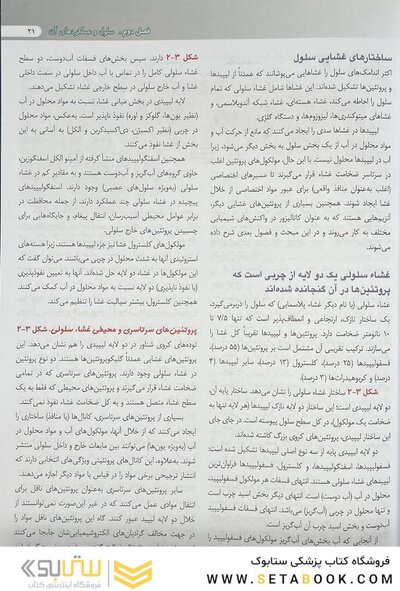 فصل دوم. سلول و عملکردهای آن
۲۱
ساختارهای غشایی سلول
اکثر اندامک‌های سلول را غشاهایی می‌پوشانند که عمدتاً از لیپیدها
و پروتئین‌ها تشکیل شده‌اند. این غشاها شامل غشاء سلولی که تمام
سلول را احاطه می‌کند، غشاء هسته‌ای، غشاء شبکه آندوپلاسمی، و
غشاهای میتوکندری‌ها، لیزوزوم‌ها، و دستگاه گلژی.
لیپیدها در غشاها سدی را ایجاد می‌کنند که مانع از حرکت آب و
مواد محلول در آب از یک بخش سلول به بخش دیگر می‌شود، زیرا
آب در لیپیدها محلول نیست. با این حال، مولکول‌های پروتئین اغلب
در سرتاسر ضخامت غشاء قرار می‌گیرند تا مسیرهای اختصاصی
(اغلب به‌عنوان منافذ واقعی) برای عبور مواد اختصاصی از خلال
غشاء ایجاد شوند. همچنین بسیاری از پروتئین‌های غشایی دیگر،
آنزیم‌هایی هستند که به عنوان کاتالیزور در واکنش‌های شیمیایی
مختلف به کار می‌روند و در این مبحث و فصول بعدی شرح داده
می‌شوند.
غشاء سلولی یک دو لایه از چربی است که
پروتئین‌ها در آن گنجانده شده‌اند
غشاء سلولی (یا نام دیگر غشاء پلاسمایی) که سلول را دربرمی‌گیرد،
یک ساختار نازک، ارتجاعی و انعطاف‌پذیر است که تنها ۷/۵ تا
۱۰ نانومتر ضخامت دارد. پروتئین‌ها و لیپیدها تقریباً کل غشا را
می‌سازند. ترکیب تقریبی آن مشتمل است بر پروتئین‌ها (۵۵ درصد)،
فسفولیپیدها (۲۵ درصد)، کلسترول (۱۳ درصد)، سایر لیپیدها (۴
درصد) و کربوهیدرات‌ها (۳ درصد).
شکل ۳-۲ ساختار غشاء سلولی را نشان می‌دهد. ساختار پایه آن،
دو لایه لیپیدی است؛ این ساختار دو لایه نازک لیپیدها (هر لایه تنها به
ضخامت یک مولکول)، در کل سطح سلول پیوسته است. در جای جای
این ساختار لیپیدی، پروتئین‌های کروی بزرگ کاشته شده‌اند.
دو لایه لیپیدی پایه از سه نوع اصلی لیپیدها تشکیل شده است:
فسفولیپیدها، اسفنگولیپیدها، و کلسترول. فسفولیپیدها فراوان‌ترین
لیپیدهای غشاء سلولی هستند. انتهای فسفات هر مولکول فسفولیپید
محلول در آب (آب دوست) است. انتهای دیگر بخش اسید چرب است
و تنها محلول در چربی (آب‌گریز) می‌باشد. انتهای فسفات فسفولیپید
آب‌دوست و بخش اسید چرب آن آب‌گریز است.
از آنجایی که آب بخش‌های آب‌گریز مولکول‌های فسفولیپید را
شکل ۳-۲ دارند. سپس بخش‌های فسفات آب‌دوست، دو سطح
غشاء سلولی کامل را در تماس با آب داخل سلولی در سمت داخلی
غشا و آب خارج سلولی در سطح خارجی غشاء تشکیل می‌دهند.
لایه لیپیدی در بخش میانی غشاء نسبت به مواد محلول در آب
(نظیر یون‌ها، گلوکز و اوره) نفوذ ناپذیر است. به‌عکس، مواد محلول
در چربی (نظیر اکسیژن، دی‌اکسیدکربن و الکل) به آسانی به این
بخش از غشا نفوذ می‌کنند.
همچنین اسفنگولیپیدهای منشأ گرفته از آمینو الکل اسفنگوزین،
حاوی گروه‌های آب‌گریز و آب‌دوست هستند و به مقادیر کم در غشاء
سلولی (به‌ویژه سلول‌های عصبی) وجود دارند. اسفنگولیپیدهای
پیچیده در غشاء سلولی چند عملکرد دارند، از جمله محافظت در
برابر عوامل محیطی آسیب‌رسان، انتقال پیغام، و جایگاه‌هایی برای
چسبیدن پروتئین‌های خارج سلولی.
مولکول‌های کلسترول غشا نیز جزء لیپیدها هستند، زیرا هسته‌های
استروئیدی آنها به شدت محلول در چربی می‌باشند. می‌توان گفت که
این مولکول‌ها در غشاء دو لایه حل شده‌اند. آنها به تعیین نفوذپذیری
(یا نفوذ ناپذیری) دو لایه نسبت به مواد محلول در آب کمک می‌کنند.
همچنین کلسترول، بیشتر سیالیت غشا را تنظیم می‌کند.
پروتئین‌های سرتاسری و محیطی غشاء سلولی. شکل ۳-۲
توده‌های کروی شناور در دو لایه لیپیدی را هم نشان می‌دهد. این
پروتئین‌های غشایی عمدتاً گلیکوپروتئین‌ها هستند. دو نوع پروتئین
در غشاء سلولی وجود دارند. پروتئین‌های سرتاسری که در تمام
ضخامت غشاء قرار می‌گیرند و پروتئین‌های محیطی که فقط به یک
سطح غشاء متصل هستند و به کل ضخامت غشاء نفوذ نمی‌کنند.
بسیاری از پروتئین‌های سرتاسری، کانال‌ها (یا منافذ) ساختاری را
ایجاد می‌کنند که از خلال آنها، مولکول‌های آب و مواد محلول در
آب (به‌ویژه یون‌ها) می‌توانند بین مایعات خارج و داخل سلولی منتشر
شوند. به‌علاوه، این کانال‌های پروتئینی ویژگی‌های انتخابی دارند که
انتشار ترجیحی برخی مواد را در قیاس با مواد دیگر اجازه می‌دهند.
سایر پروتئین‌های سرتاسری به‌عنوان پروتئین‌های ناقل برای
انتقال موادی عمل می‌کنند که در غیر این‌صورت نمی‌توانستند از
خلال دو لایه لیپید عبور کنند. گاه این پروتئین‌های ناقل مواد را
در جهت مخالف گرادیان‌های الکتروشیمیایی‌شان جابجا می‌کنند
ستابوک
فروشگاه اینترنتی کتاب
فروشگاه کتاب پزشکی ستابوک
WWW.SETABOOK.COM